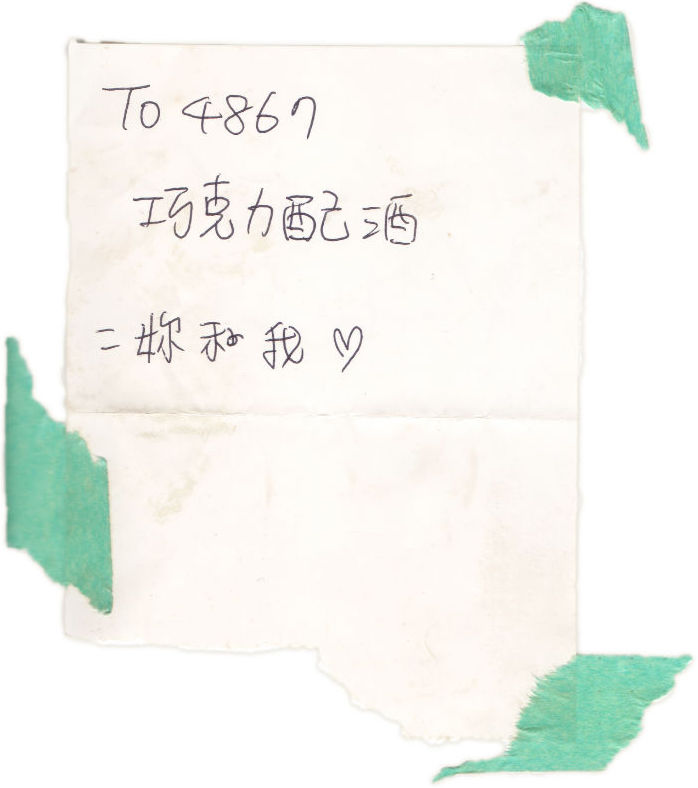 To 4867
巧克力配酒
=妳和我♡